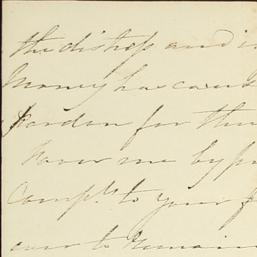 the dishop and i
Money has caus
Pardon for thu
Favor me by pr
Comp.ts to your f
ever to remain